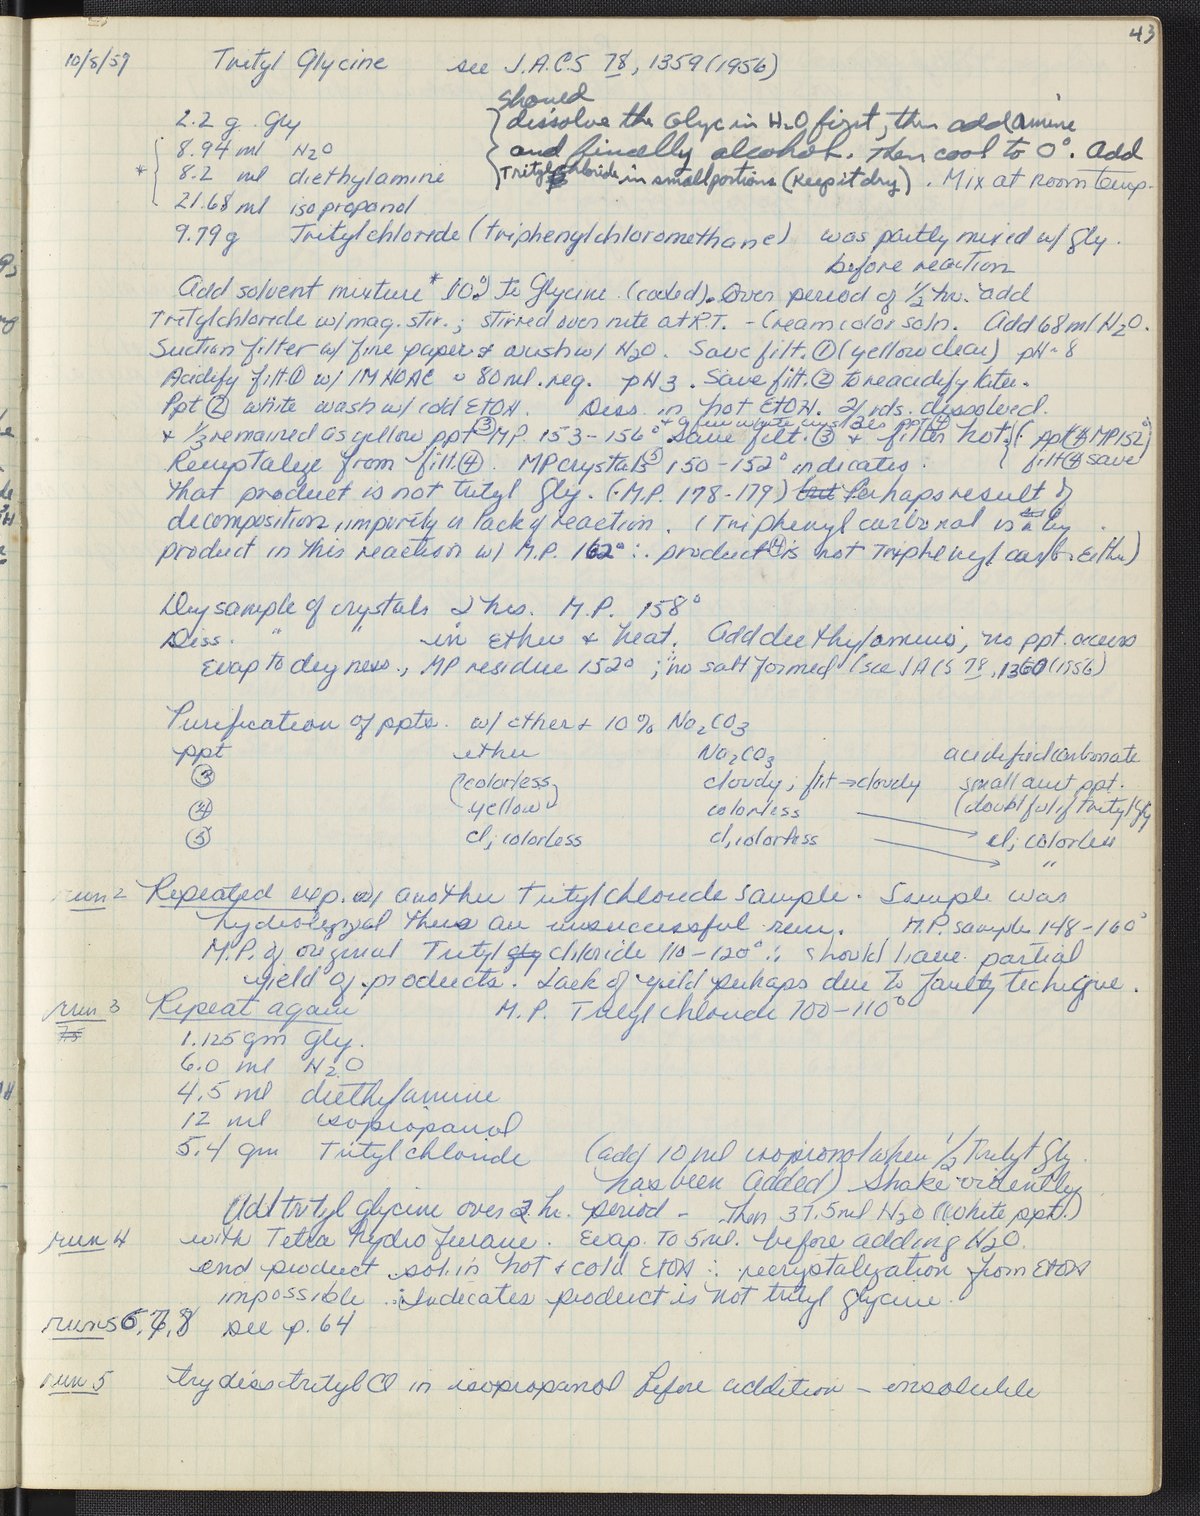 43
10/8/59 Trityl Glycine see J.A.C.S 78, 1359 (1956)
should
2.2 g. Gly dissolve the Glyc in H2O first, then add amine
8.94 ml H2O and finally alcohol. Then cool to 0°. Add
* 8.2 ml diethylamine Tritylchloride in small portions (keep it dry). Mix at room temp.
21.68 ml isopropanol
9.79 g Tritylchloride (triphenylchloromethane) was partly mixed w/ gly.
before reaction
Add solvent mixture * to Glycine (cooled). Over period of 1/2 hr. add
Tritylchloride w/ mag. stir.; stirred over nite at R.T. - Cream color soln. Add 68 ml H2O.
Suction filter w/ fine paper & wash w/ H2O. Save filt. ① (yellow clear) pH = 8
Acidify filt ① w/ 1M HOAC ~ 80 ml. req. pH 3. Save filt. ② to reacidify later.
Ppt ② white wash w/ cold EtOH. Diss. in hot EtOH. 2/3 rds. dissolved.
+ a few white crystals ppt ④
& 1/3 remained as yellow ppt ③ MP. 153-156° Save filt. ③ & filter hot. (ppt ④ MP 152°)
Recrystalize from filt. ④. MP crystals ⑤ 150-152° indicates filt ④ save
that product is not trityl gly. (M.P. 178-179) but Perhaps result of
decomposition, impurity or lack of reaction. (Triphenyl carbonal is a by
product in this reaction w/ M.P. 162° ∴ product ④ is not Triphenyl carb. either)
Dry sample of crystals 2 hrs. M.P. 158°
Diss. " " in ether & heat. Add diethylamine, no ppt. occurs
Evap to dryness., MP residue 152°; no salt formed (see JACS 78, 1360 (1956)
Purification of ppts. w/ ether + 10% Na2CO3
ppt ether Na2CO3 acidified carbonate
③ (colorless cloudy; filt → cloudy small amt ppt.
④ (yellow) colorless (doubtful if trityl gly
⑤ cl; colorless cl, colorless cl; colorless
"
run 2 Repeated exp. w/ another Tritylchloride sample. Sample was
hydrolyzed thus an unsuccessful run. M.P. sample 148-160°
M.P. of original Trityl gly chloride 110-120° ∴ should have partial
yield of products. Lack of yield perhaps due to faulty technique.
run 3 Repeat again M.P. Trityl chloride 100-110°
1.125 gm Gly.
6.0 ml H2O
4.5 ml diethylamine
12 ml isopropanol
5.4 gm Tritylchloride (add 10 ml isopronol when 1/2 Trityl Gly.
has been added) shake violently
Add trityl glycine over 2 hr. period - then 37.5 ml H2O (white ppt.)
run 4 with Tetra hydro furane. Evap. to 5 ml. before adding H2O.
end product sol. in hot & cold EtOH ∴ recrystalization from EtOH
impossible ∴ Indicates product is not trityl glycine.
runs 6, 7, 8 see p. 64
run 5 try diss trityl Cl in isopropanol before addition - insoluble